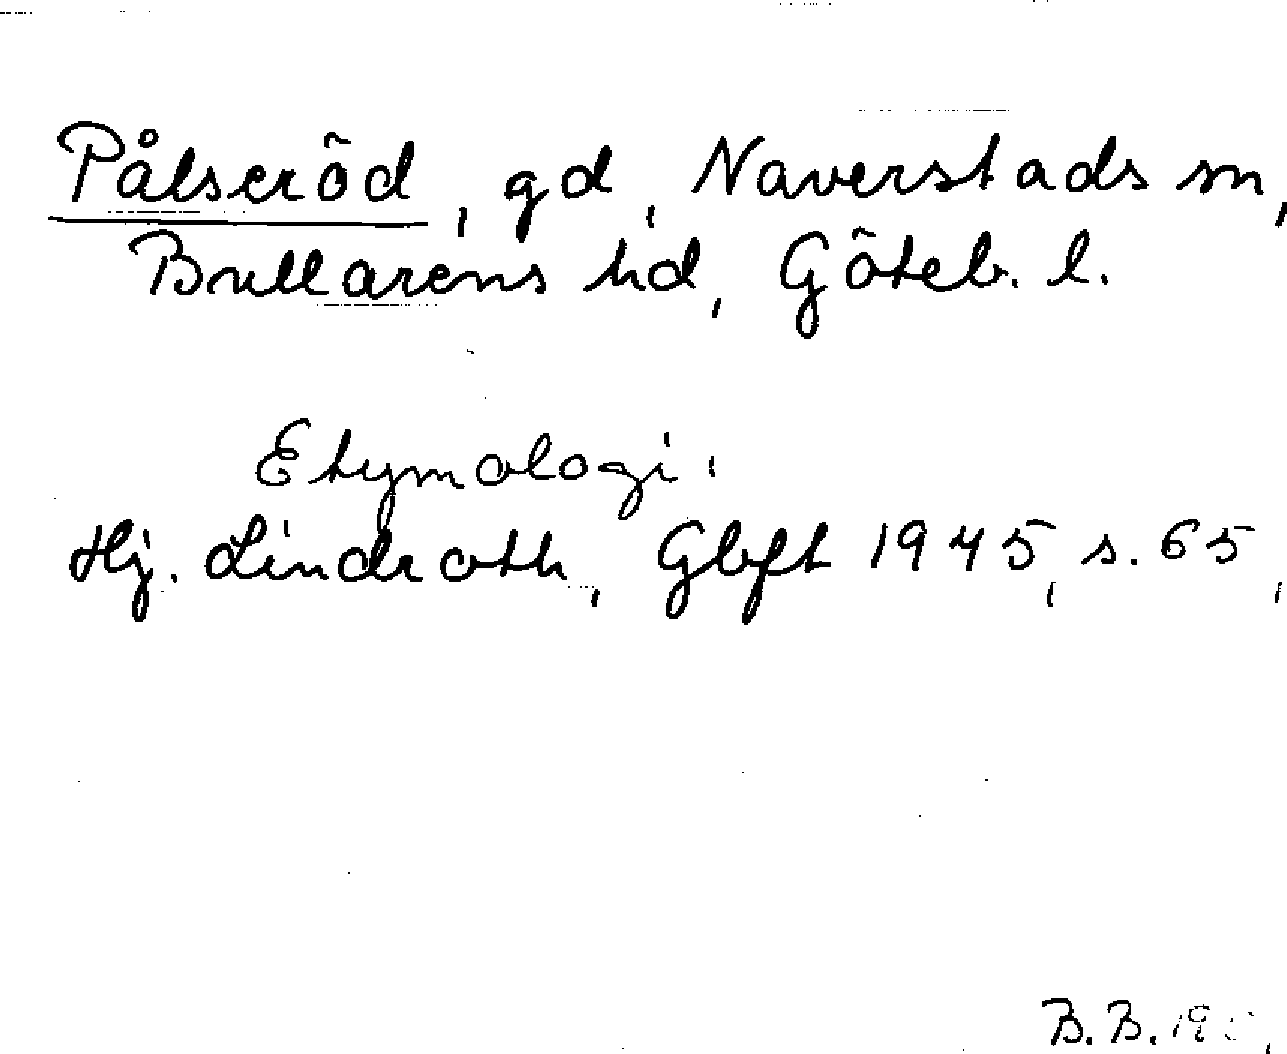 Pålseröd, gd, Naverstads sn,
Bullarens hd, Göteb. l.
Etymologi:
Hj. Lindroth, Gbft 1945, s. 65,
B. B.